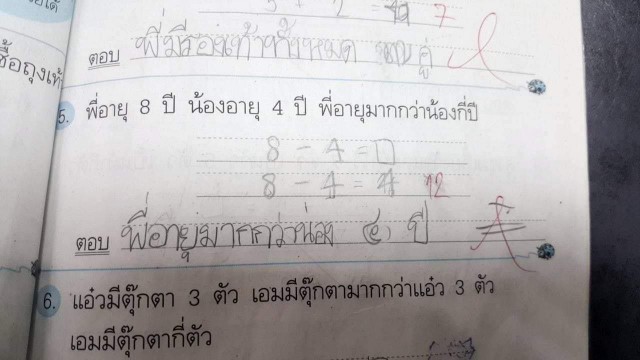 5 + 2 = 7
ตอบ พี่มีรองเท้าทั้งหมด คู่
ซื้อถุงเท้า
5. พี่อายุ 8 ปี น้องอายุ 4 ปี พี่อายุมากกว่าน้องกี่ปี
8 - 4 = □
8 - 4 = 4 12
ตอบ พี่อายุมากกว่าน้อง ๔ ปี
6. แอ๋วมีตุ๊กตา 3 ตัว เอมมีตุ๊กตามากกว่าแอ๋ว 3 ตัว
เอมมีตุ๊กตากี่ตัว